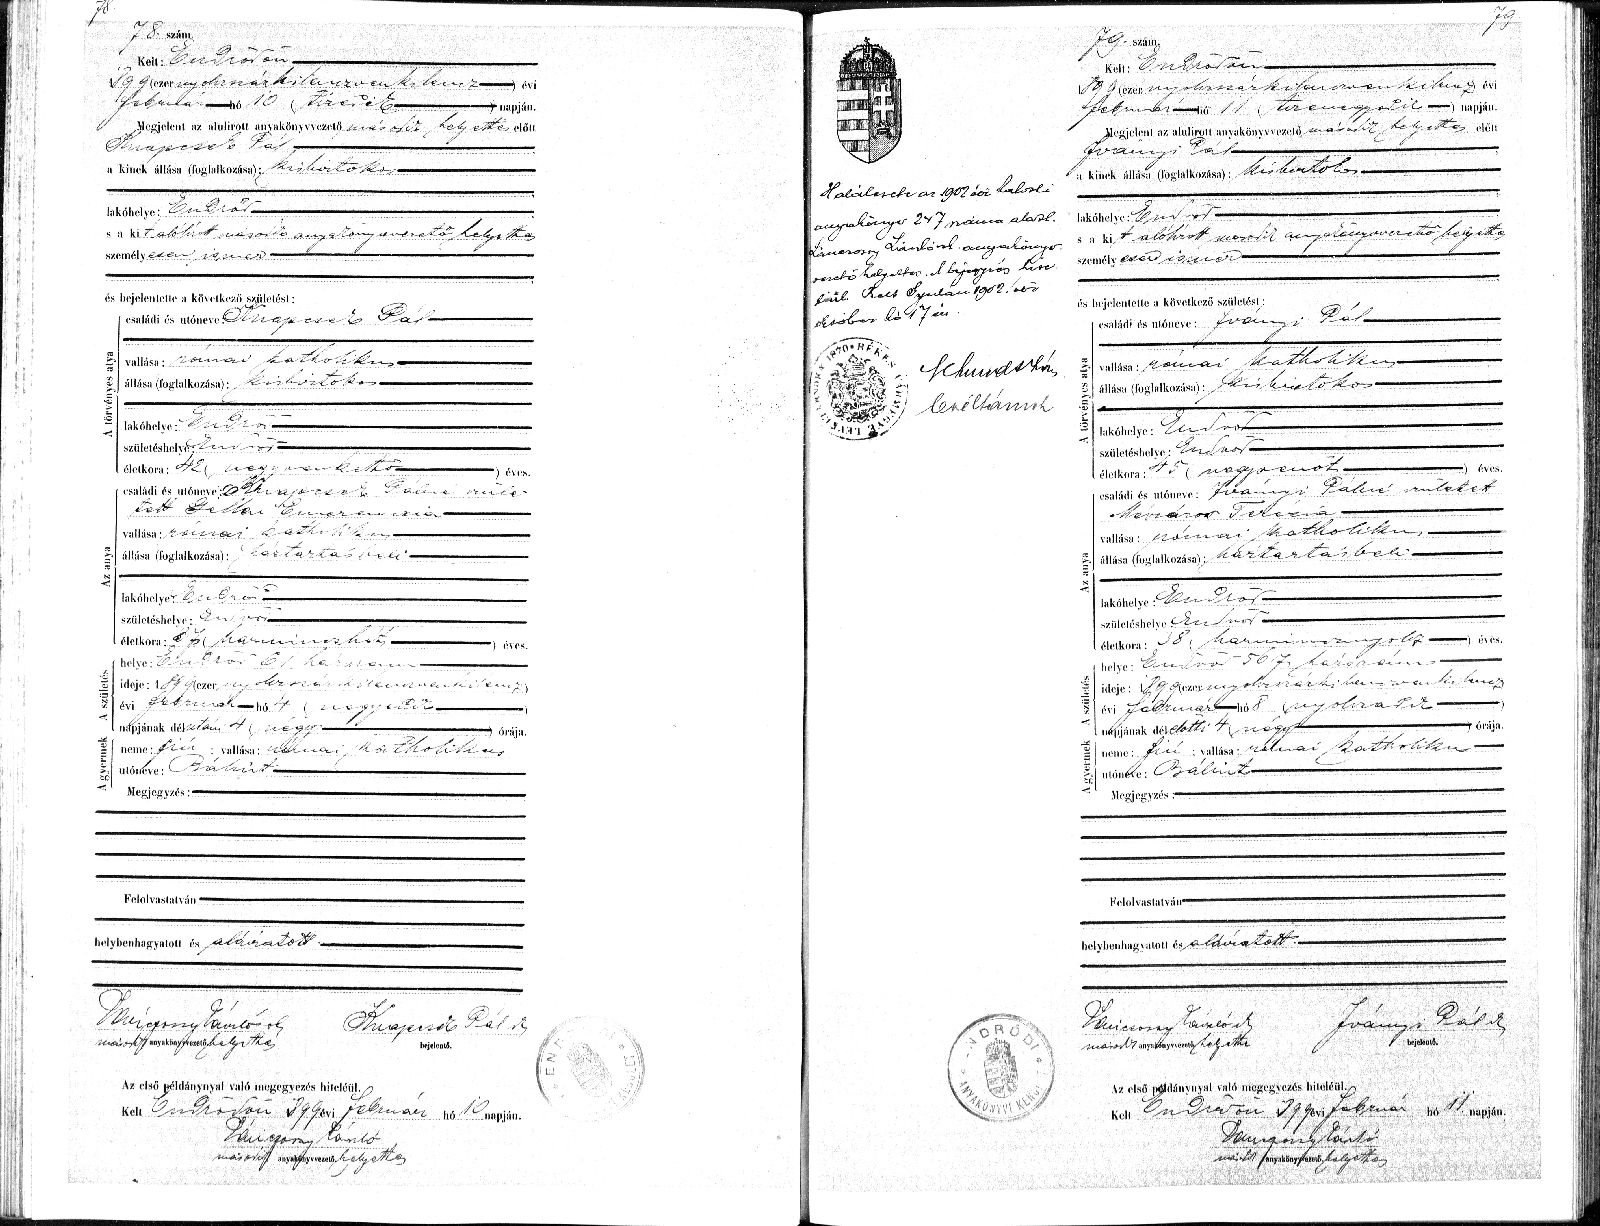 78.
78. szám.
Kelt: Endrődön
899 (ezer nyolcszázkilenczvenkilencz) évi
február hó 10 (tizedik) napján.
Megjelent az alulirott anyakönyvvezető második helyettes előtt
Knapcsek Pál
a kinek állása (foglalkozása): kisbirtokos
lakóhelye: Endrőd
s a kit alólirott második anyakönyvvezető helyettes
személyesen ismer
és bejelentette a következő születést:
A törvényes atya
családi és utóneve: Knapcsek Pál
vallása: római katholikus
állása (foglalkozása): kisbirtokos
lakóhelye: Endrőd
születéshelye: Endrőd
életkora: 42 (negyvenkettő) éves.
Az anya
családi és utóneve: Knapcsek Pálné szüle-
tett Gellai Emerenczia
vallása: római katholikus
állása (foglalkozása): háztartásbeli
lakóhelye: Endrőd
születéshelye: Endrőd
életkora: 37 (harminczhét) éves.
A születés
helye: Endrőd 61. házszám
ideje: 1899 (ezer nyolcszázkilenczvenkilencz)
évi február hó 4 (negyedik)
napjának délután 4 (négy) órája.
A gyermek
neme: fiú ; vallása: római katholikus
utóneve: Bálint
Megjegyzés:
Felolvastatván
helybenhagyatott és aláiratott.
Vaniczony László sk Knapcsek Pál sk
második anyakönyvvezető helyettes bejelentő.
Az első példánynyal való megegyezés hiteléül.
Kelt Endrődön 899 évi február hó 10 napján.
László
második anyakönyvvezető helyettes
79
Halálesete az 1902 évi halotti
anyakönyv 247 száma alatt.
László sk anyakönyv
vezető helyettes. A bejegyzés hite
léül. Kelt Gyulán 1902. évi
október hó 17 én.
levéltárnok
1870 BÉKÉS VÁRMEGYE LEVÉLTÁRA
79. szám.
Kelt: Endrődön
899 (ezer nyolcszázkilenczvenkilencz) évi
február hó 11 (tizenegyedik) napján.
Megjelent az alulirott anyakönyvvezető második helyettes előtt
Iványi Pál
a kinek állása (foglalkozása): kisbirtokos
lakóhelye: Endrőd
s a kit alólirott második anyakönyvvezető helyettes
személyesen ismer
és bejelentette a következő születést:
A törvényes atya
családi és utóneve: Iványi Pál
vallása: római katholikus
állása (foglalkozása): kisbirtokos
lakóhelye: Endrőd
születéshelye: Endrőd
életkora: 45 (negyvenöt) éves.
Az anya
családi és utóneve: Iványi Pálné született
Mészáros Terézia
vallása: római katholikus
állása (foglalkozása): háztartásbeli
lakóhelye: Endrőd
születéshelye: Endrőd
életkora: 38 (harmincznyolcz) éves.
A születés
helye: Endrőd 567. házszám
ideje: 899 (ezer nyolcszázkilenczvenkilencz)
évi február hó 8 (nyolczadik)
napjának délelőtti 4 (négy) órája.
A gyermek
neme: fiú ; vallása: római katholikus
utóneve: Bálint
Megjegyzés:
Felolvastatván
helybenhagyatott és aláiratott.
László sk Iványi Pál sk
második anyakönyvvezető helyettes bejelentő.
ENDRŐDI ANYAKÖNYVI KERÜLET
Az első példánynyal való megegyezés hiteléül.
Kelt Endrődön 899 évi február hó 11 napján.
László
második anyakönyvvezető helyettes